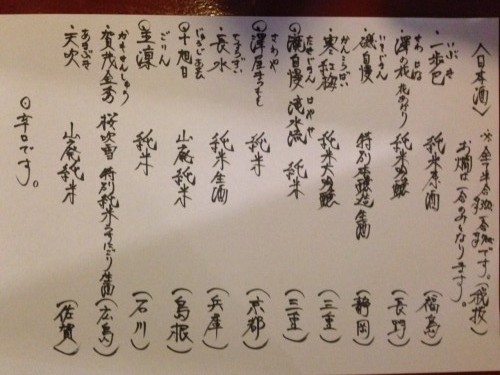 〈日本酒〉
※全て半合
です。(税抜)
お燗は一合のみとなります。
いぶき
・一歩己 純米原酒 (福島)
・澤の花 花あかり 純米吟醸 (長野)
いそじまん
・磯自慢 特別本醸造 生酒 (静岡)
かんこうばい
・寒紅梅 純米大吟醸 (三重)
たきじまん
◦瀧自慢 滝水流 純米 (三重)
さわや
◦澤屋まつもと 純米 (京都)
・長水 純米生酒 (兵庫)
じゅうじあさひ
◦十旭日 山廃純米 (島根)
ごりん
◎五凛 純米 (石川)
かもきんしゅう
・賀茂金秀 桜吹雪 特別純米うすにごり生酒 (広島)
あまぶき
・天吹 山廃純米 (佐賀)
◎辛口です。